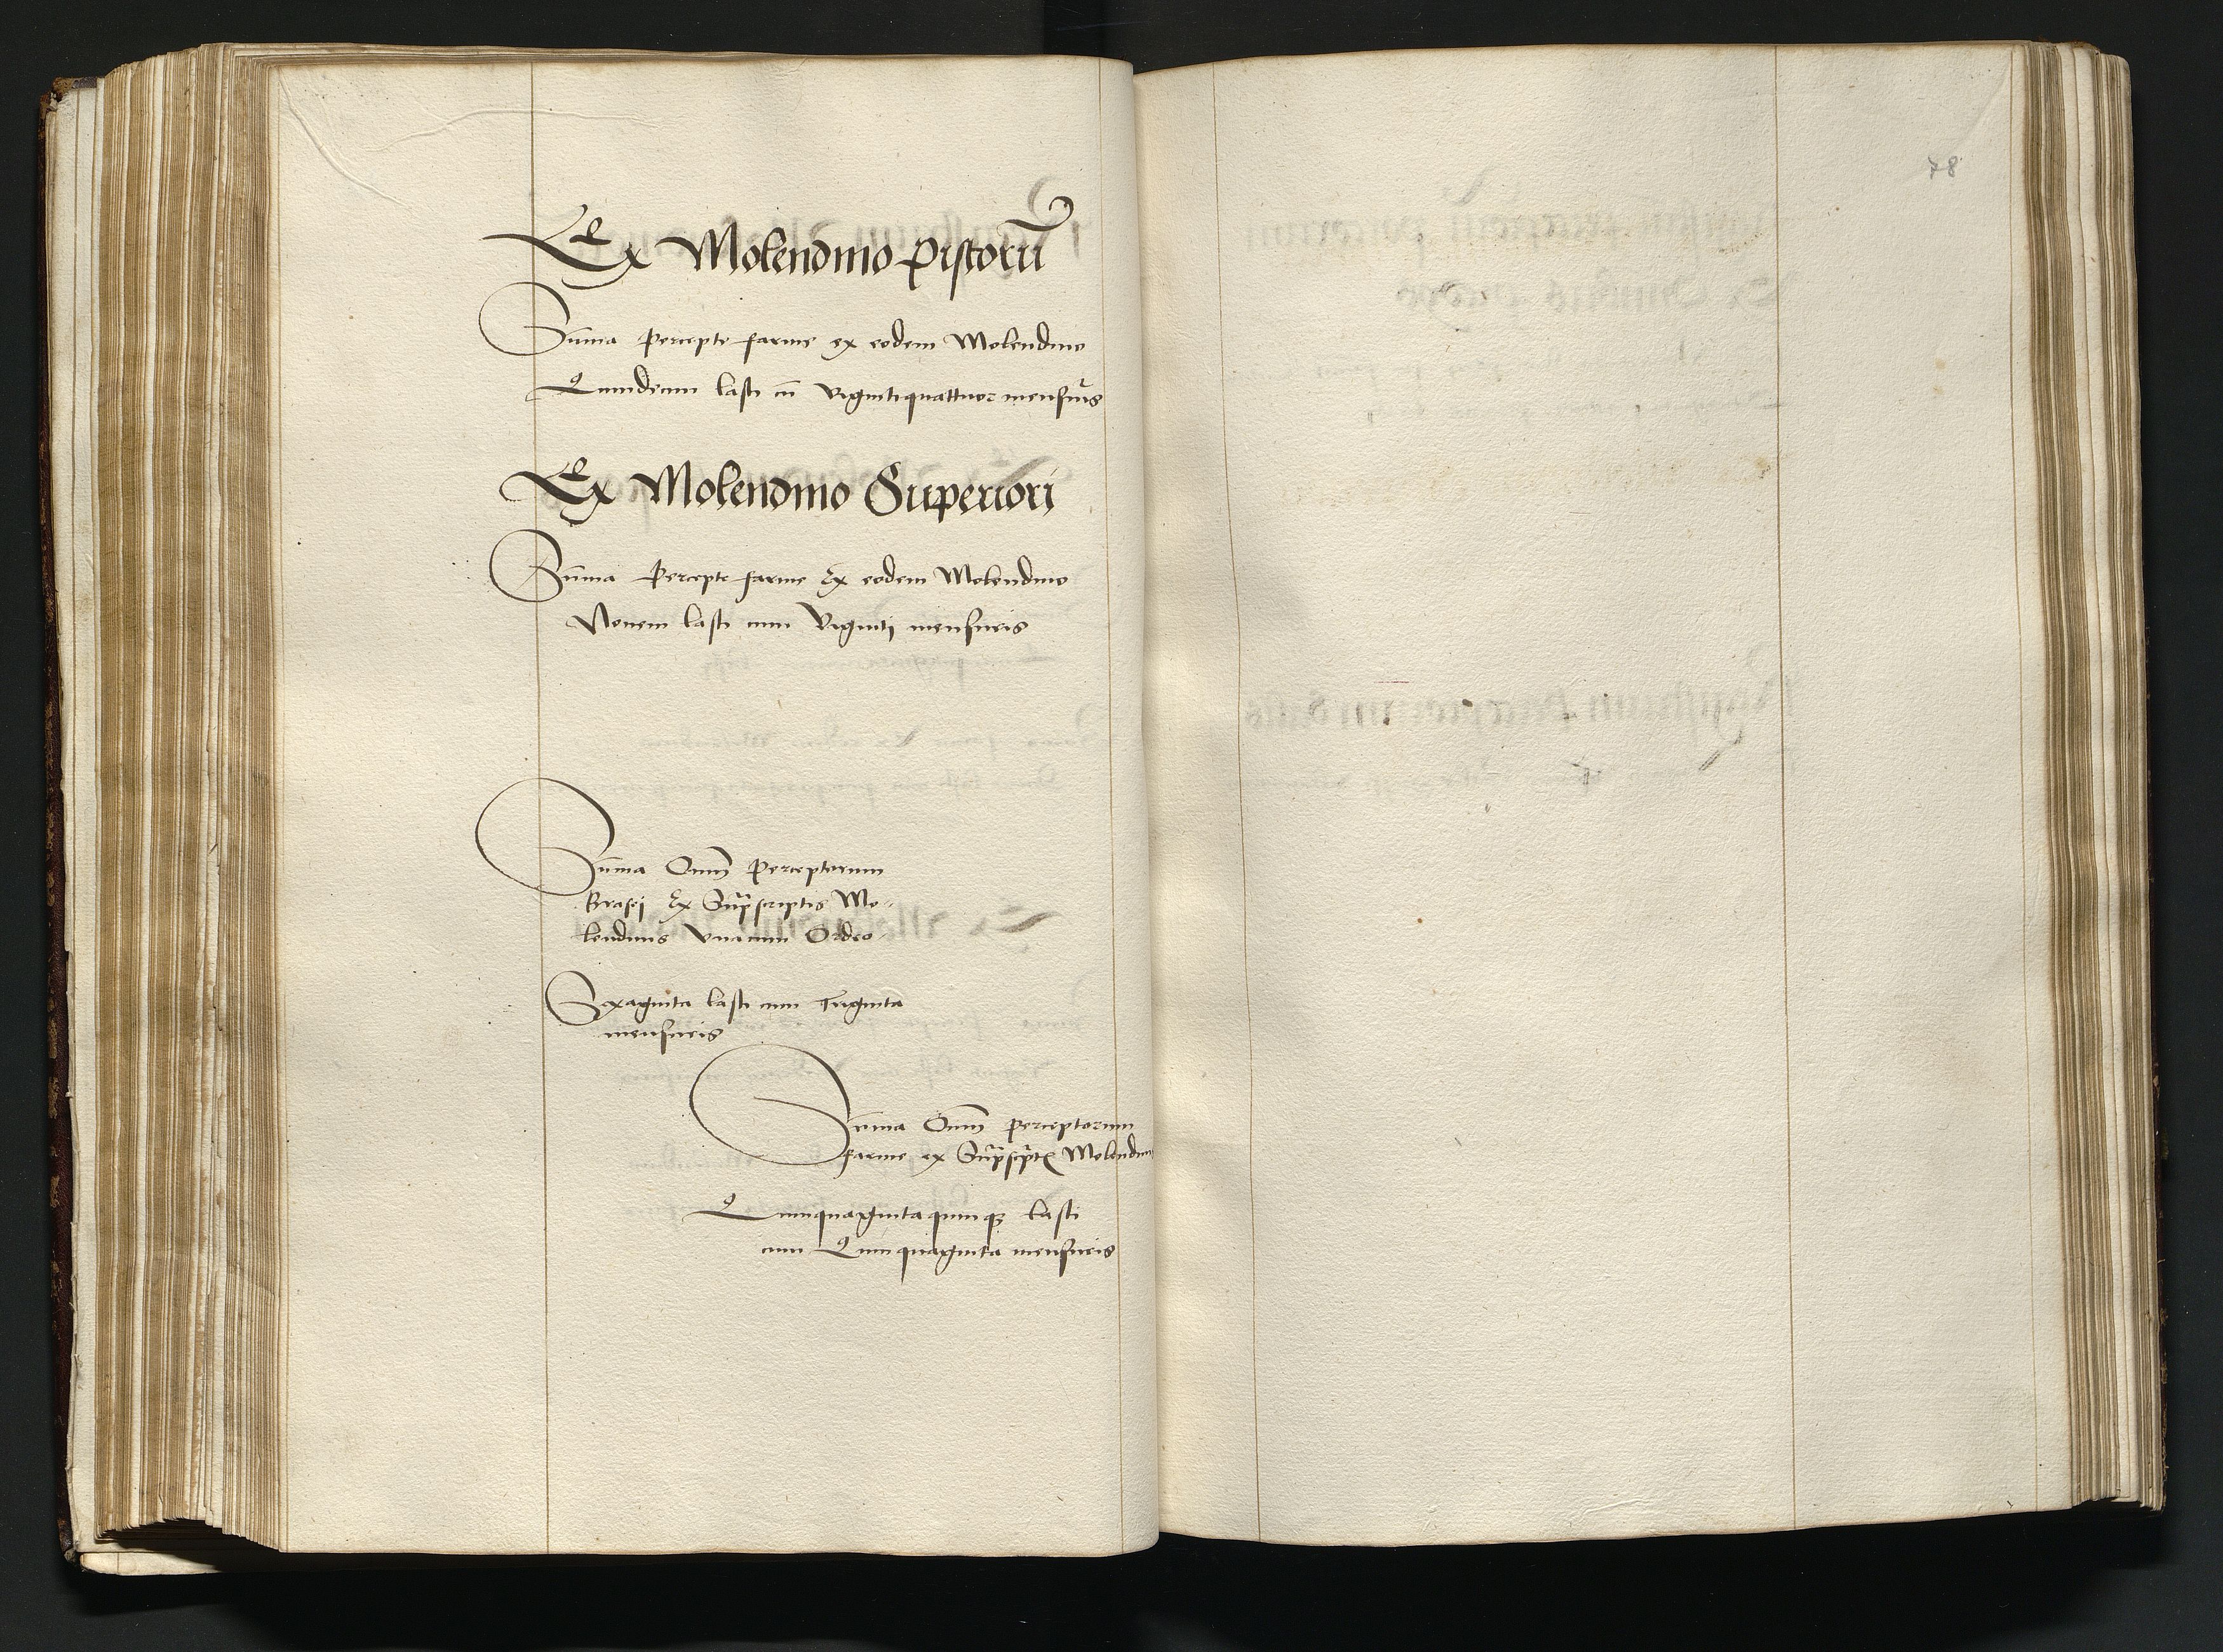 Ex Molendino pistorū
Sum̄a percepte farine ex eodem Molendino
Quindecim lasti cū vigintiquattuor mensuris
Ex Molendino Superiori
Sum̄a Percepte farine Ex eodem Molendino
Nouem lasti cum Viginti mensuris
Sum̄a Omn̄ Perceptorum
Brasij Ex Suprascriptis Mo-
lendinis vnacum Ordeo
Sexaginta lasti cum Triginta
mensuris
Sum̄a Omn̄ perceptorum
farine ex Molendin
Quinquagintaquinqꝫ lasti
cum Quinquaginta mensuris
78